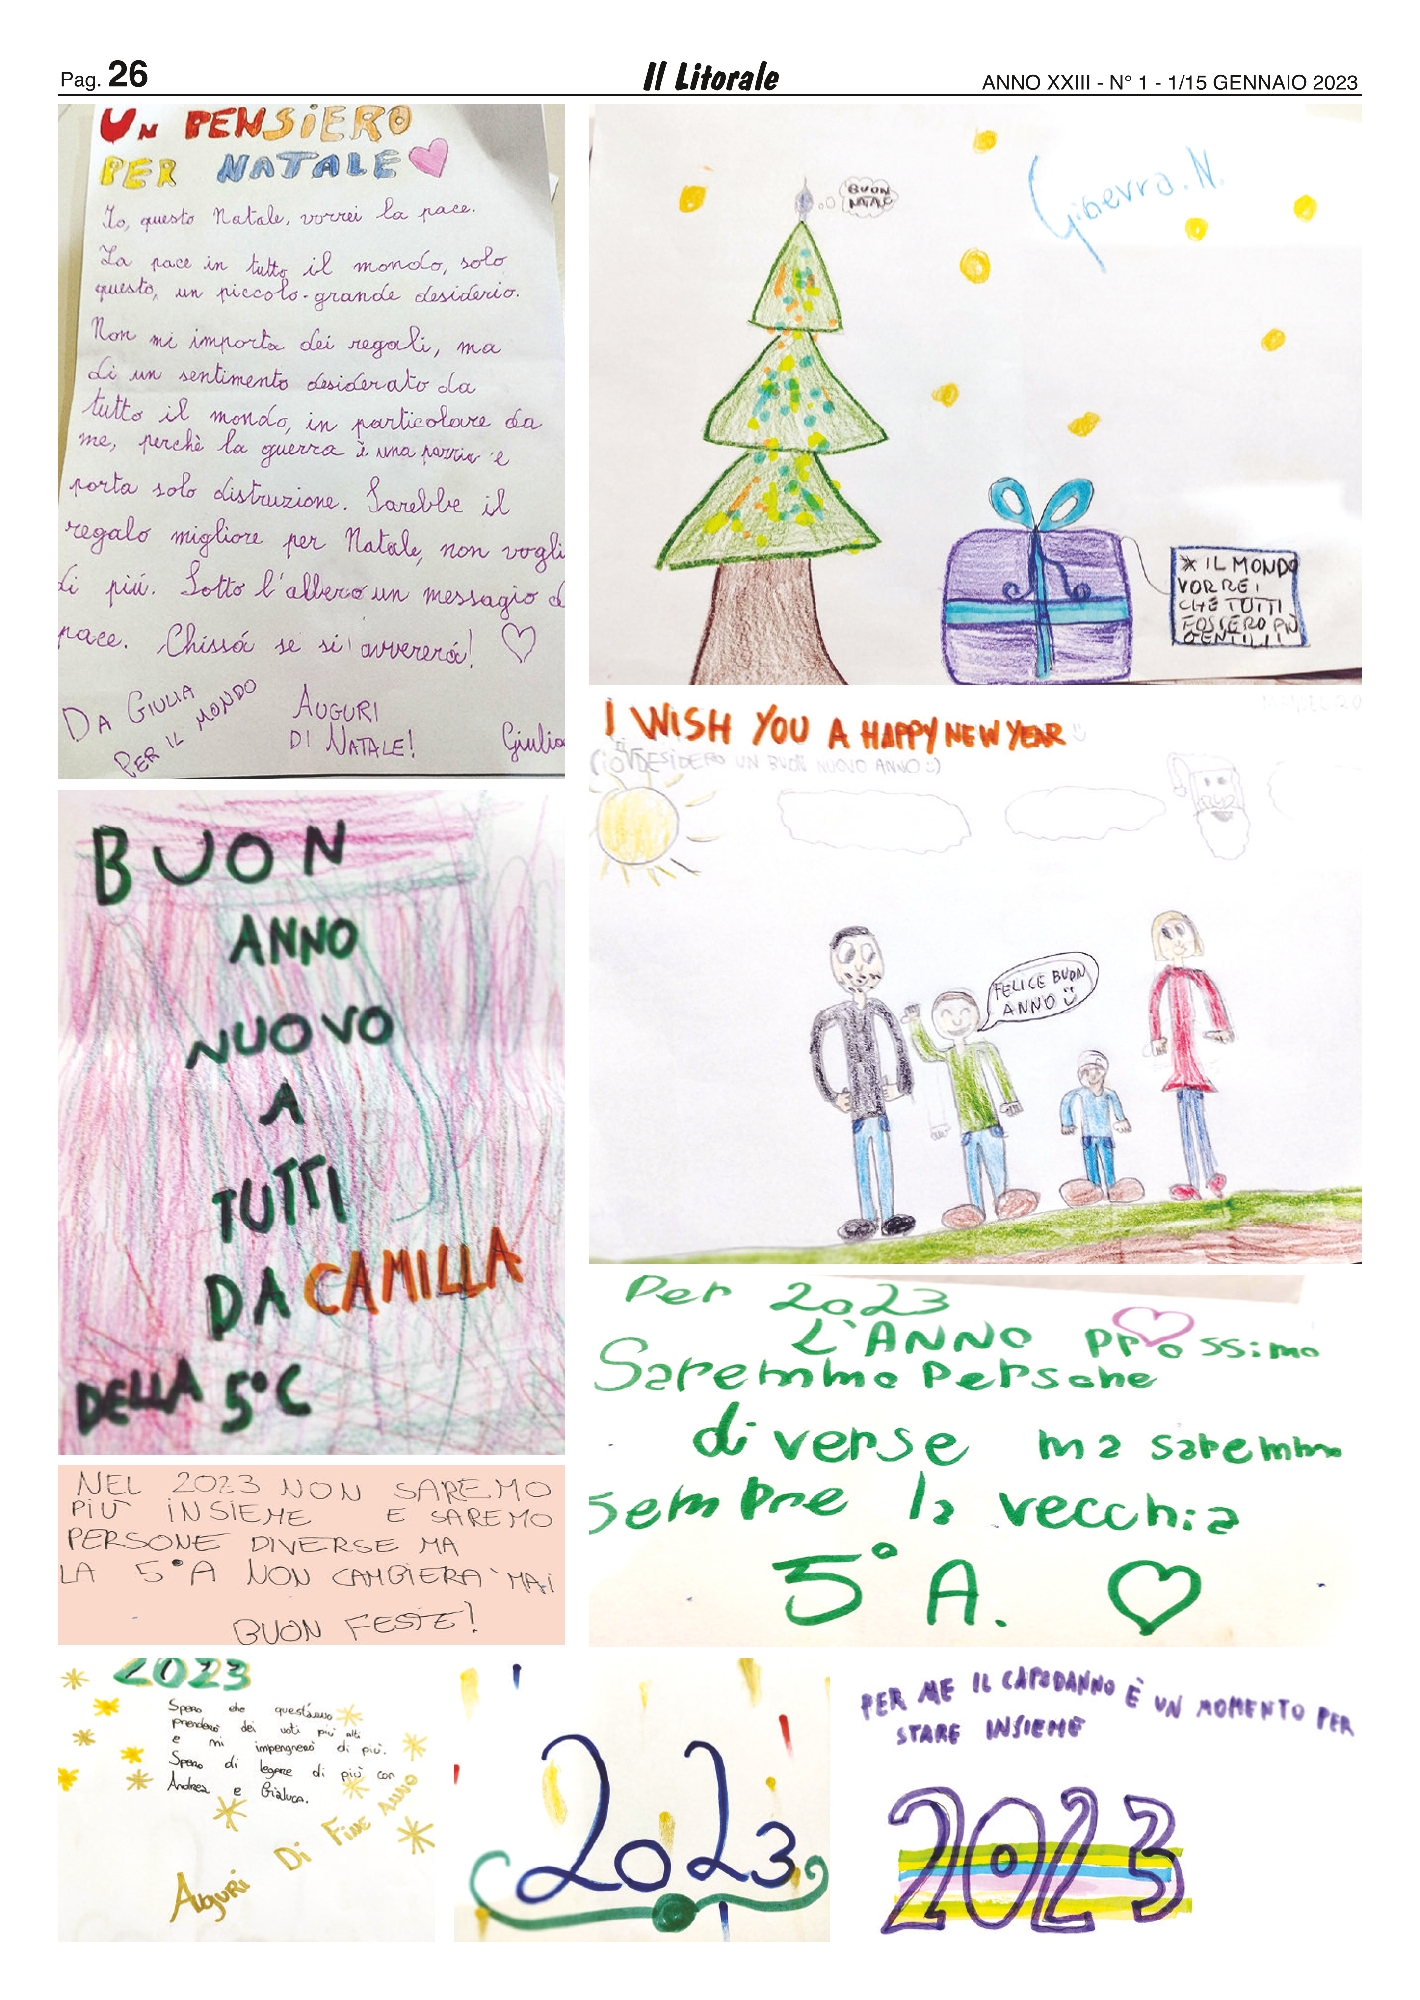 Pag. 26
Il Litorale
ANNO XXIII - N° 1 - 1/15 GENNAIO 2023
UN PENSIERO
PER NATALE
Io, questo Natale, vorrei la pace.
La pace in tutto il mondo, solo
questo, un piccolo-grande desiderio.
Non mi importa dei regali, ma
di un sentimento desiderato da
tutto il mondo, in particolare da
me, perchè la guerra è una pazzia e
porta solo distruzione. Sarebbe il
regalo migliore per Natale, non vogli
di piú. Sotto l'albero un messagio d
pace. Chissá se si avvererá!
DA GIULIA
PER IL MONDO
AUGURI
DI NATALE!
Giulia
BUON
NATALE
Ginevra. N.
* IL MONDO
VORREI
CHE TUTTI
FOSSERO PIÙ
GENTILI!
I WISH YOU A HAPPY NEW YEAR
(IO VI DESIDERO UN BUON NUOVO ANNO :)
FELICE BUON
ANNO
BUON
ANNO
NUOVO
A
TUTTI
DA CAMILLA
DELLA 5°C
Per 2023
L'ANNO prossimo
Saremmo Persone
diverse ma saremmo
sempre la vecchia
5° A.
NEL 2023 NON SAREMO
PIU' INSIEME E SAREMO
PERSONE DIVERSE MA
LA 5°A NON CAMBIERA' MAI
BUON FESTE!
2023
Spero che quest'anno
prenderò dei voti più alti
e mi impegnerò di più.
Spero di legare di più con
Andrea e Gialuca.
Auguri Di Fine anno
2023
PER ME IL CAPODANNO È UN MOMENTO PER
STARE INSIEME
2023